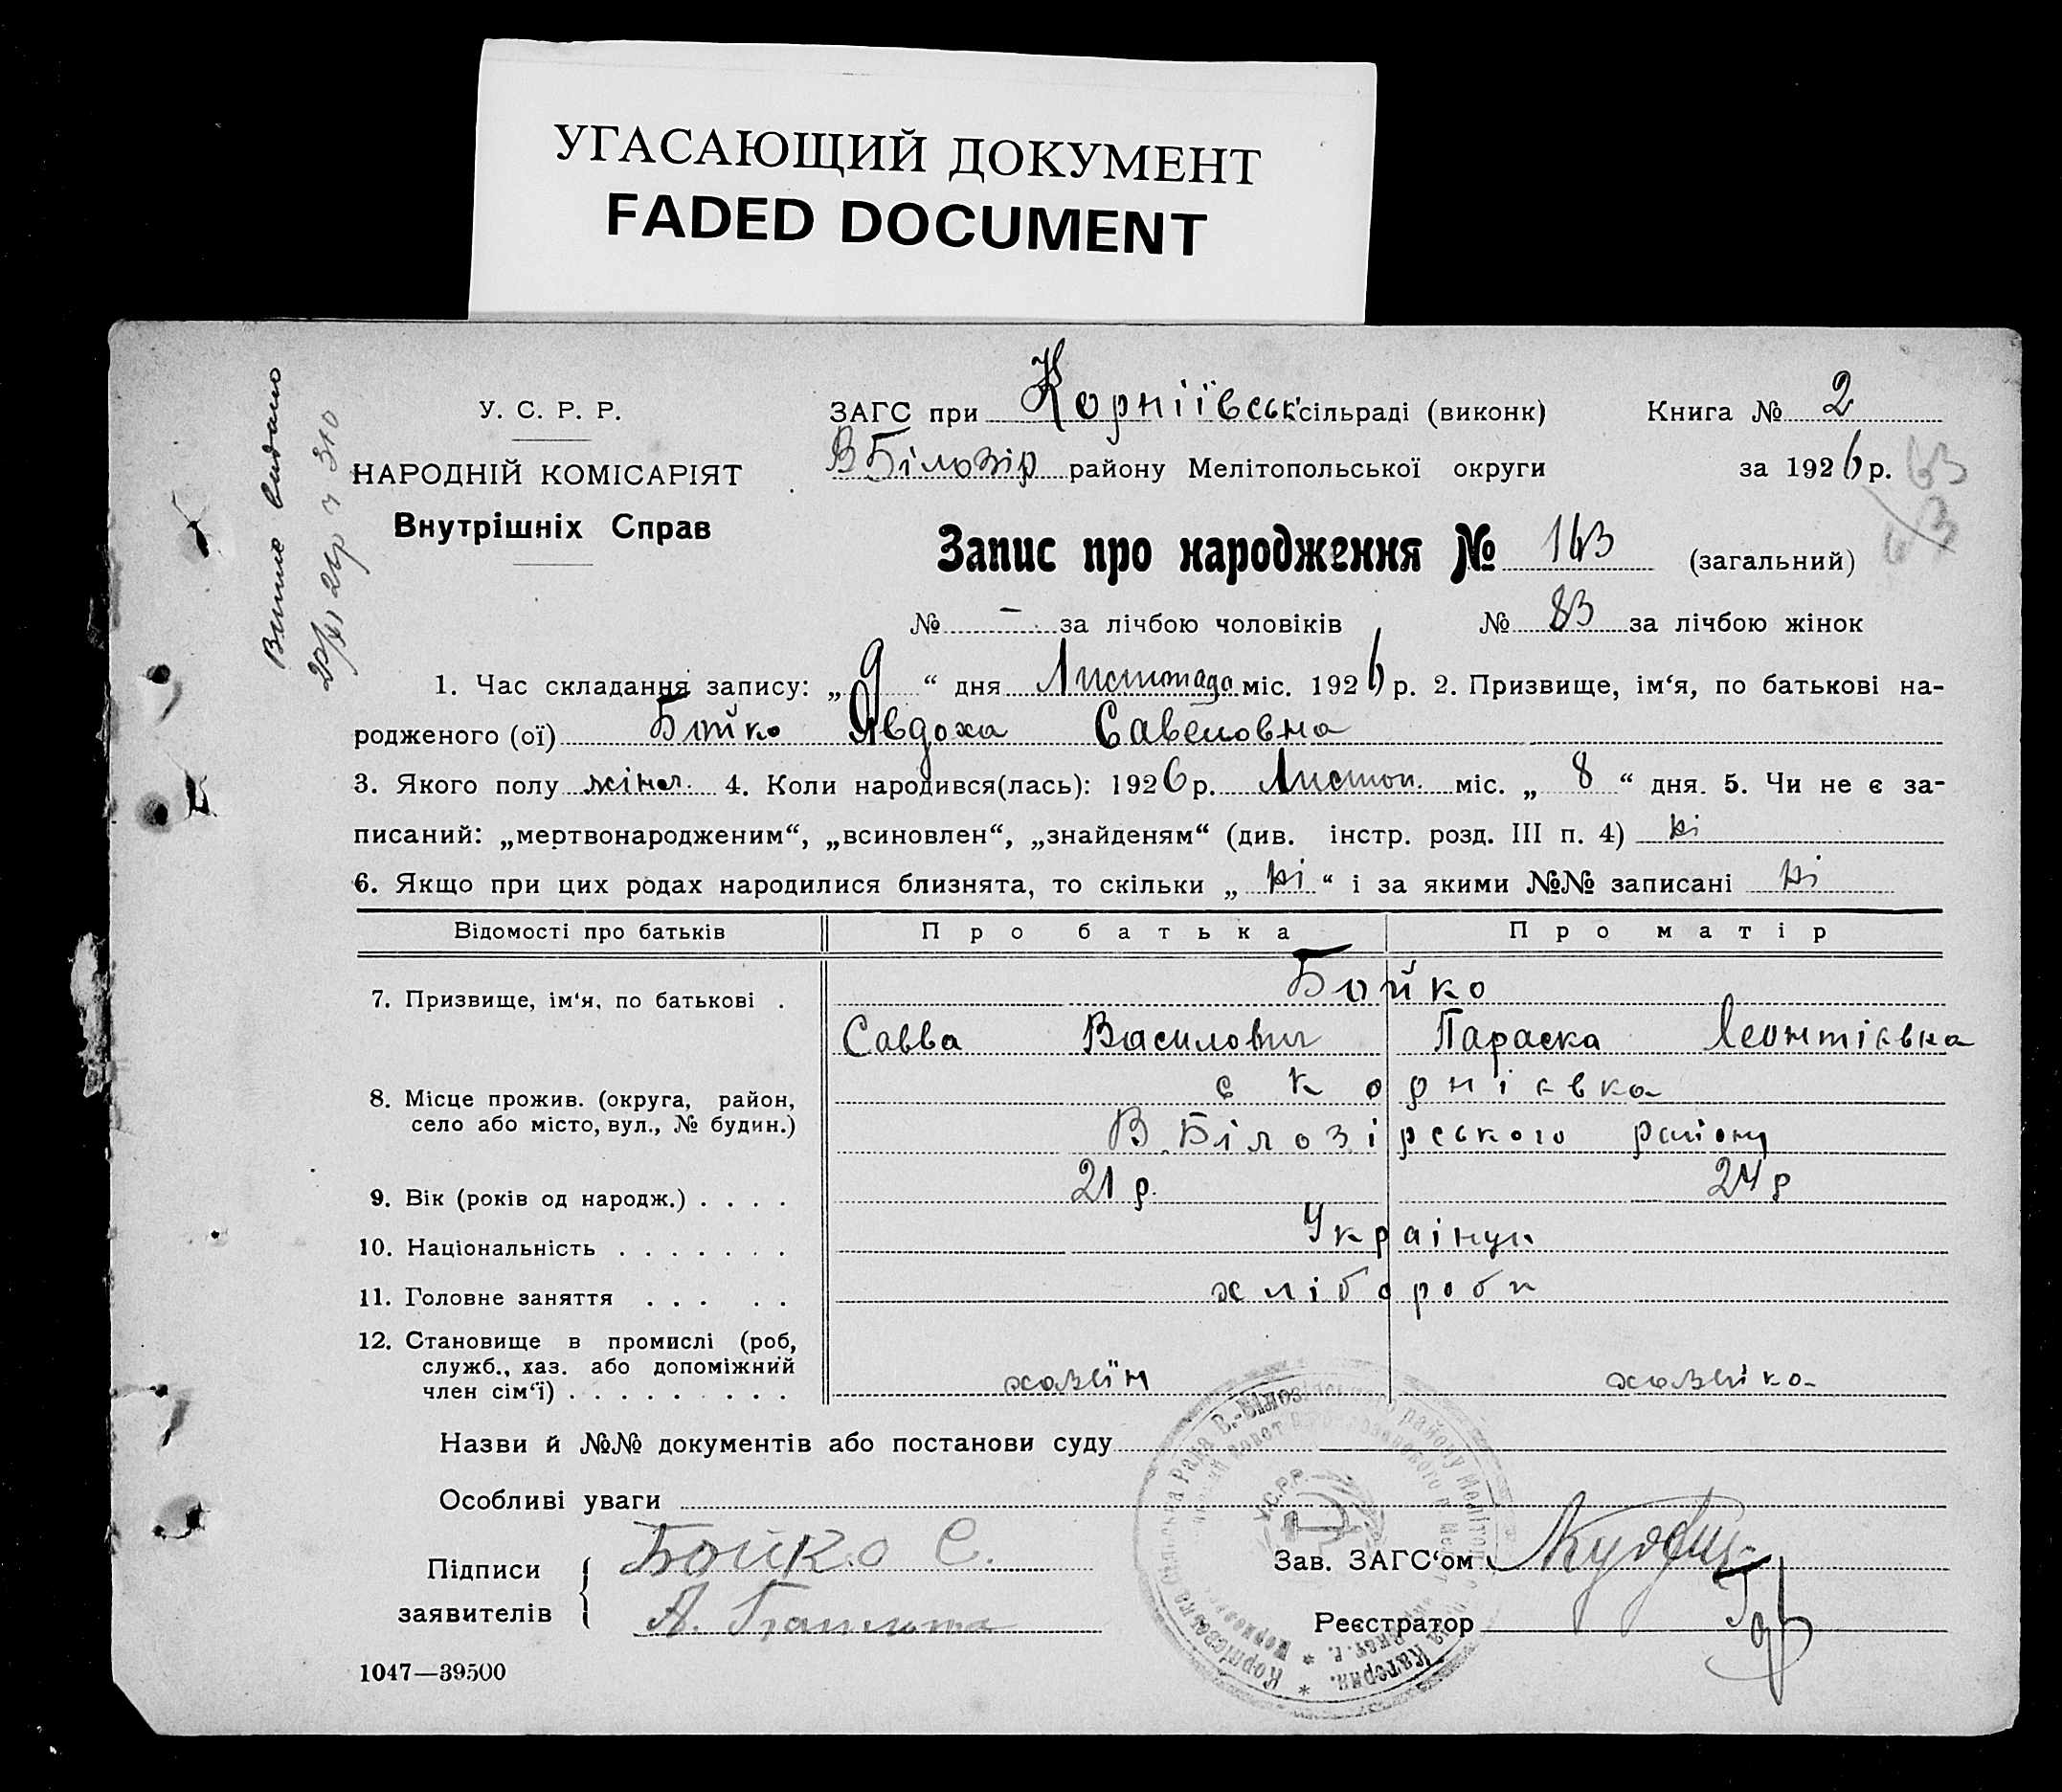 УГАСАЮЩИЙ ДОКУМЕНТ
FADED DOCUMENT
У. С. Р. Р.
НАРОДНІЙ КОМІСАРІЯТ
Внутрішніх Справ
ЗАГС при Корніївськ. сільраді (виконк)
Книга № 2
В Білозір району Мелітопольської округи
за 1926 р. 63
Запис про народження № 143 (загальний)
№ – за лічбою чоловіків № 83 за лічбою жінок
1. Час складання запису: „9“ дня Листопада міс. 1926 р. 2. Призвище, ім‘я, по батькові на-
родженого (ої) Бойко Явдоха Савеловна
3. Якого полу жіноч. 4. Коли народився(лась): 1926 р. Листоп. міс. „8“ дня. 5. Чи не є за-
писаний: „мертвонародженим“, „всиновлен“, „знайденям“ (див. інстр. розд. III п. 4) ні
6. Якщо при цих родах народилися близнята, то скільки „ні“ і за якими №№ записані ні
Відомості про батьків Про батька Про матір
7. Призвище, ім‘я, по батькові . Бойко
Савва Василович Параска Леонтієвна
8. Місце прожив. (округа, район, село або місто, вул., № будин.) с Корнієвка
В Білозірського району
9. Вік (років од народж.) . . . . 21 р. 24 р
10. Національність . . . . . . . Українци
11. Головне заняття . . . . . хлібороби
12. Становище в промислі (роб, служб., хаз. або допоміжний член сім‘ї) . . . . . . . . . хазяїн хазяйка
Назви й №№ документів або постанови суду
Особливі уваги
Підписи заявителів
Бойко С.
А.
Зав. ЗАГС‘ом
Реєстратор
У.С.Р.Р.
1047—39500